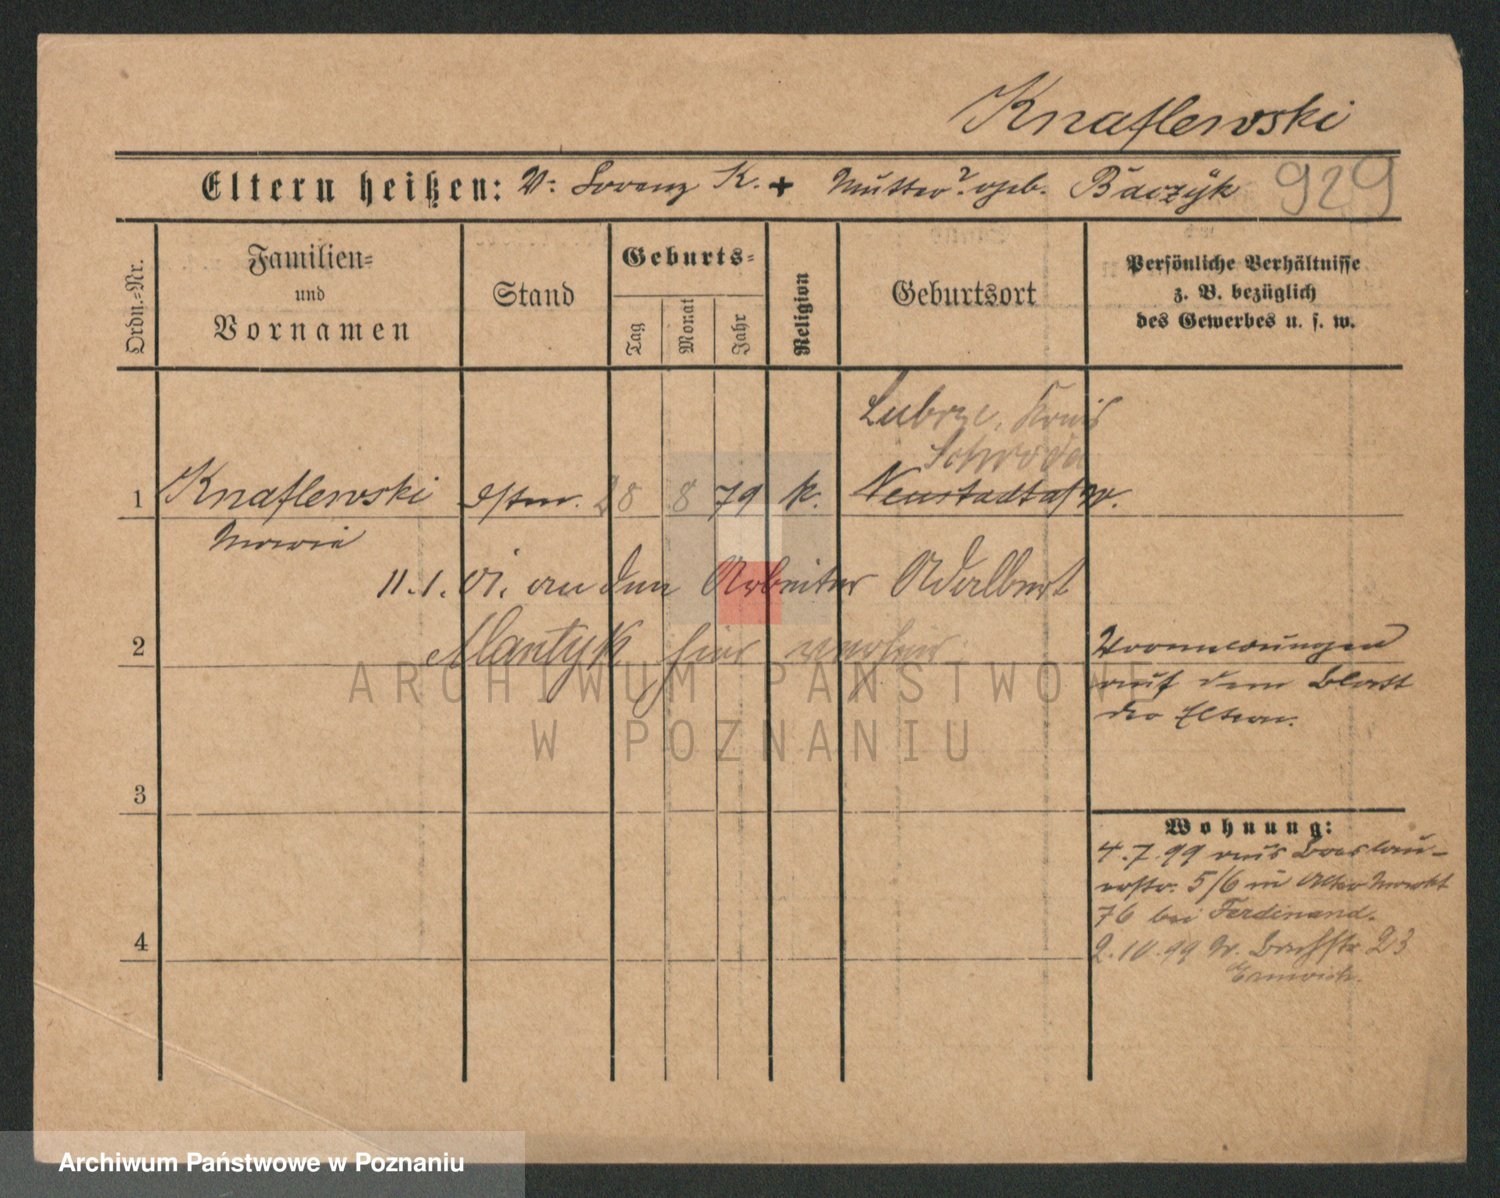 Knaflewski
Eltern heißen: V: Lorenz K. + Mutter? geb. Baczyk 929
Ordn.=Nr.
Familien=
und
Vornamen
Stand
Geburts=
Tag
Monat
Jahr
Religion
Geburtsort
Persönliche Verhältnisse
z. B. bezüglich
des Gewerbes u. s. w.
Lubrze, Kreis
Schroda
1 Knaflewski 28 8 79 k. Neustadt a/W.
Marie
11.1.01. an den Arbeiter Adalbert
2 Mantyk hier verheir
Vormeldungen
auf dem Blatt
der Eltern.
ARCHIWUM PAŃSTWOWE
W POZNANIU
3
Wohnung:
4.7.99 aus Breslau-
erstr. 5/6 n Alter Markt
76 bei Ferdinand.
4
2.10.99 N. 23
Archiwum Państwowe w Poznaniu